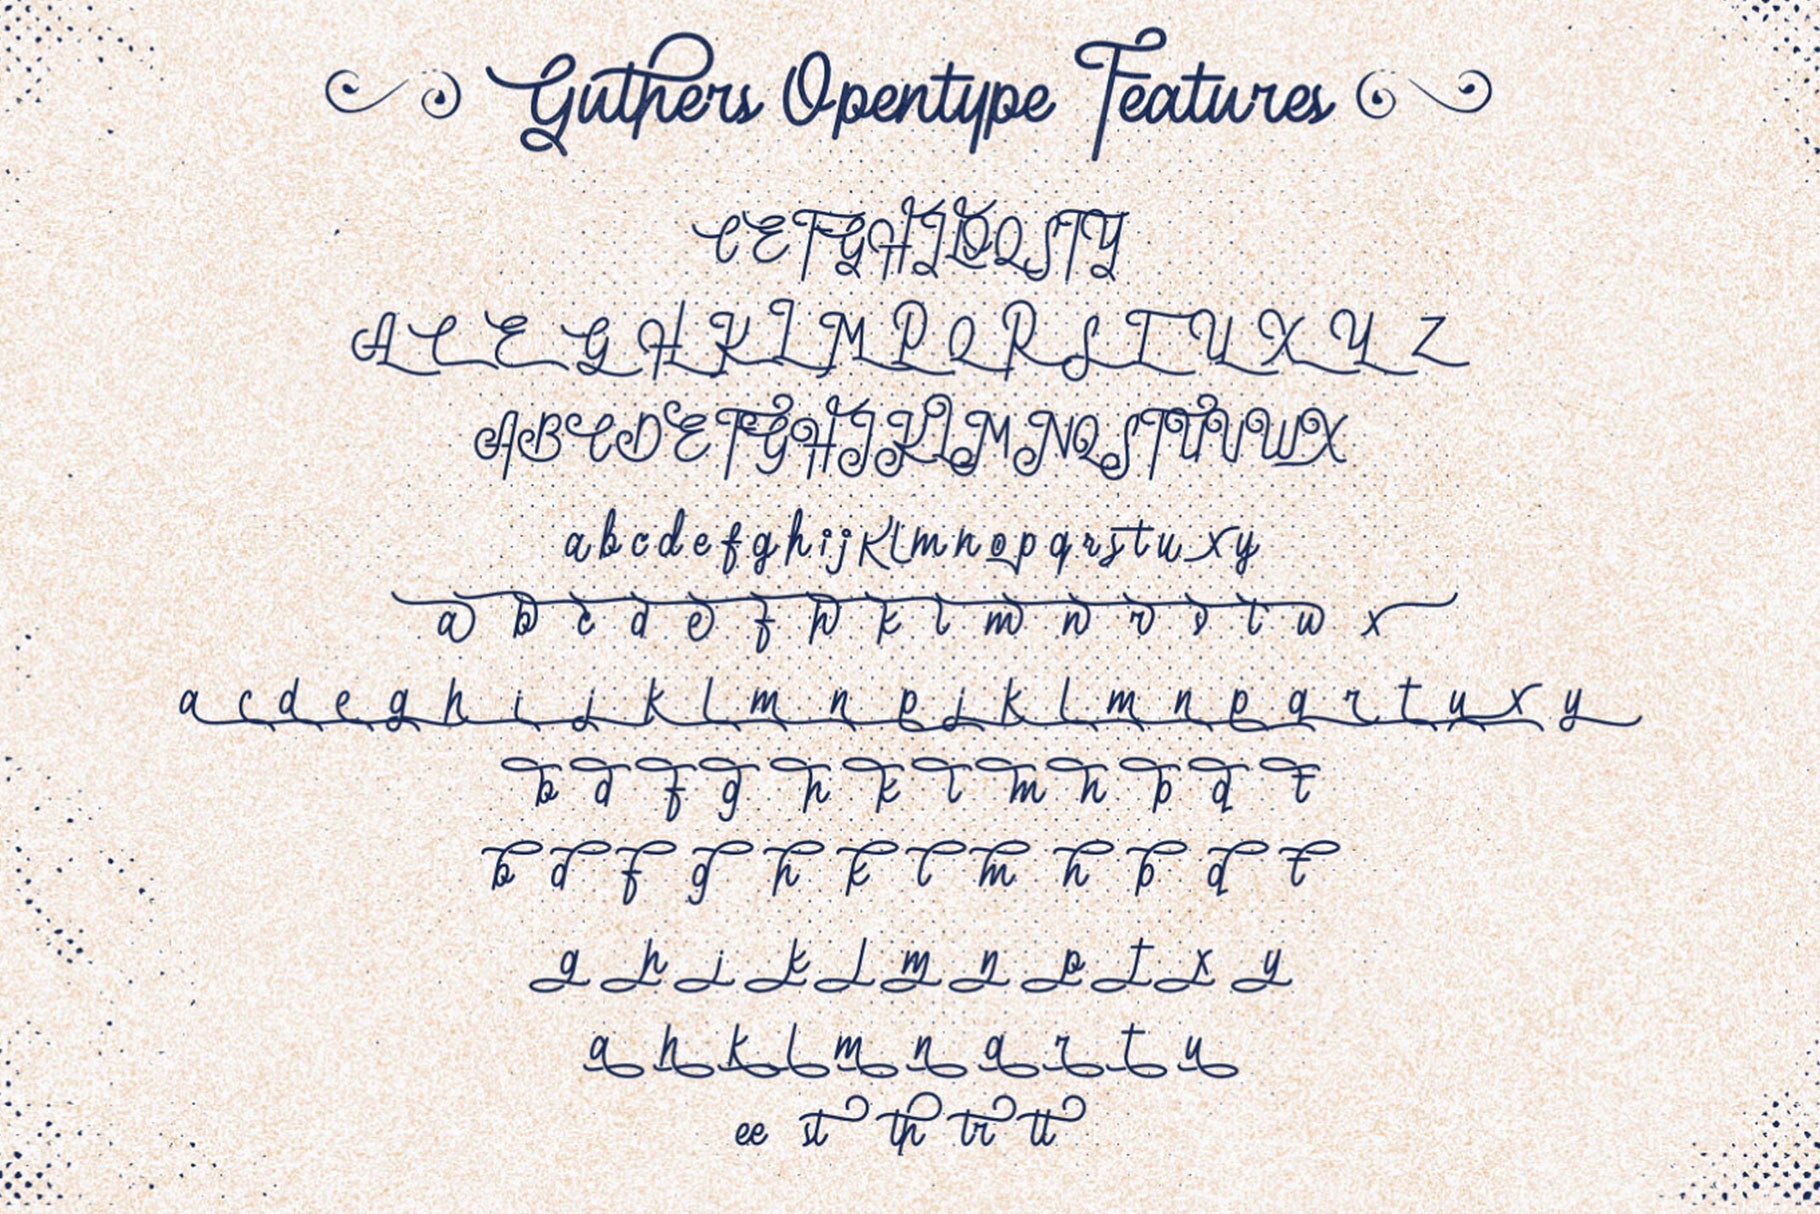 Guthers Opentype Features
CEFGHJLOQSTY
ACEGHKLMPQRSTUXYZ
ABCDEFGHJKLMNQSTUVWX
abcdefghijklmnopqrstuxy
a b c d e f h k l m n r s t w x
a c d e g h i j k l m n p j k l m n p q r t u x y
b d f g h k l m h b d t
b d f g h k l m h b d t
g h j k l m n p t x y
a h k l m n a r t u
ee st th tr tt